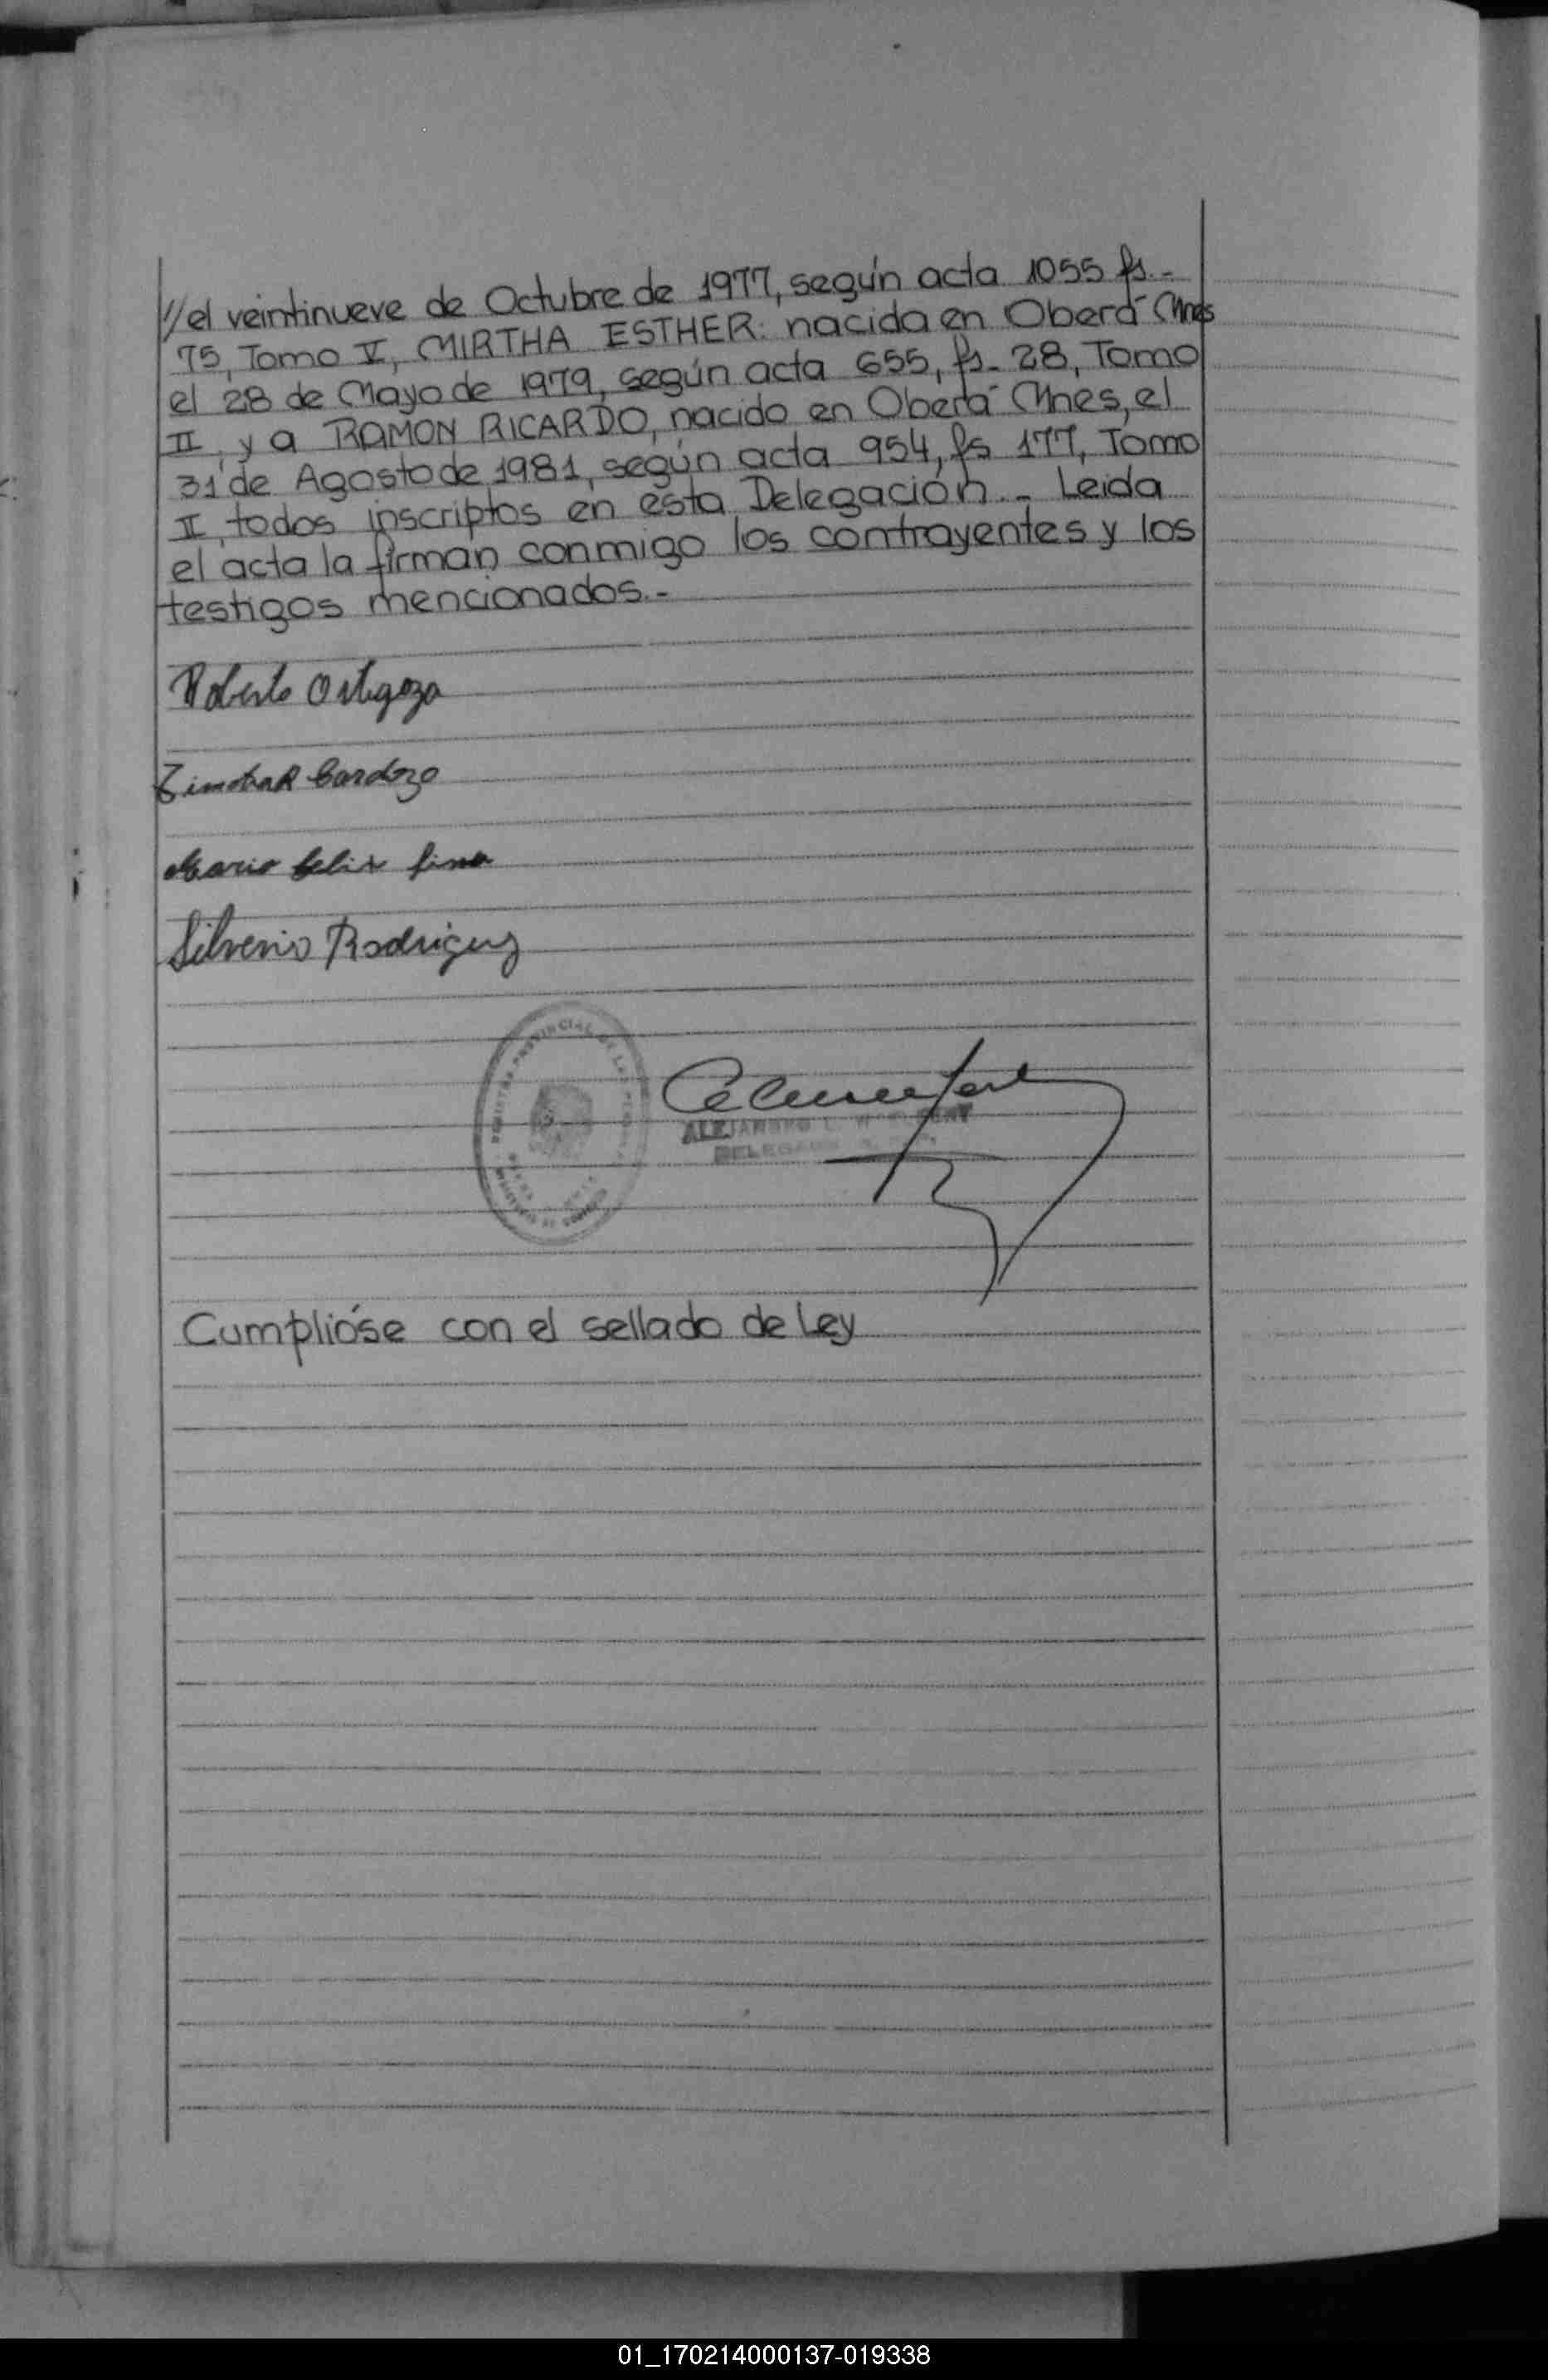 //el veintinueve de Octubre de 1977, según acta 1055 fs.-
75, Tomo V, MIRTHA ESTHER: nacida en Oberá Mnes
el 28 de Mayo de 1979, según acta 655, fs. 28, Tomo
II, y a RAMON RICARDO, nacido en Oberá Mnes, el
31 de Agosto de 1981, según acta 954, fs 177, Tomo
II, todos inscriptos en esta Delegación.- Leida
el acta la firman conmigo los contrayentes y los
testigos mencionados.-
Roberto Ortigoza
Cardozo
Mario Felix
Silverio Rodriguez
PROVINCIAL DE LAS
ALEJANDRO L.
DELEGADO
Cumplióse con el sellado de Ley
01_170214000137-019338